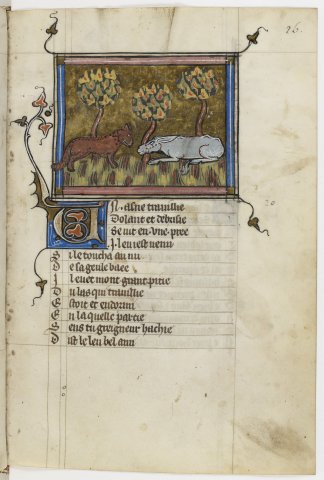 26.
Un. asne trauillie
Dolant et debrisie
Se iut en. vne. pree
J. leu i est venu
Si le toucha au nu
De sa geule baee
Il eüet mont grant pitie
Du las qui trauillie
Estoit et endormi
En la quelle partie
Sens tu greigneur hachie
Dist le leu bel ami
20